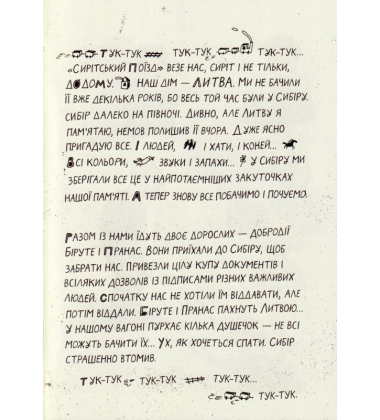 Тук-тук Тук-тук Тук-тук...
«Сирітський Поїзд» везе нас, сиріт і не тільки,
додому. Наш дім — Литва. Ми не бачили
її вже декілька років, бо весь той час були у Сибіру.
Сибір далеко на півночі. Дивно, але Литву я
пам'ятаю, немов полишив її вчора. Дуже ясно
пригадую все. І людей, і хати, і коней...
Всі кольори, звуки і запахи... У Сибіру ми
зберігали все це у найпотаємніших закуточках
нашої пам'яті. А тепер знову все побачимо і почуємо.
Разом із нами їдуть двоє дорослих — добродії
Біруте і Пранас. Вони приїхали до Сибіру, щоб
забрати нас. Привезли цілу купу документів і
всіляких дозволів із підписами різних важливих
людей. Спочатку нас не хотіли їм віддавати, але
потім віддали. Біруте і Пранас пахнуть Литвою...
У нашому вагоні пурхає кілька душечок — не всі
можуть бачити їх... Ух, як хочеться спати. Сибір
страшенно втомив.
Тук-тук тук-тук тук-тук...
тук-тук.